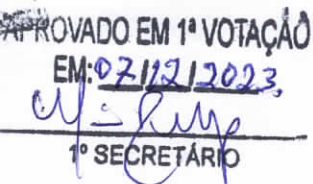 APROVADO EM 1ª VOTAÇÃO
EM: 07/12/2023,
1º SECRETÁRIO